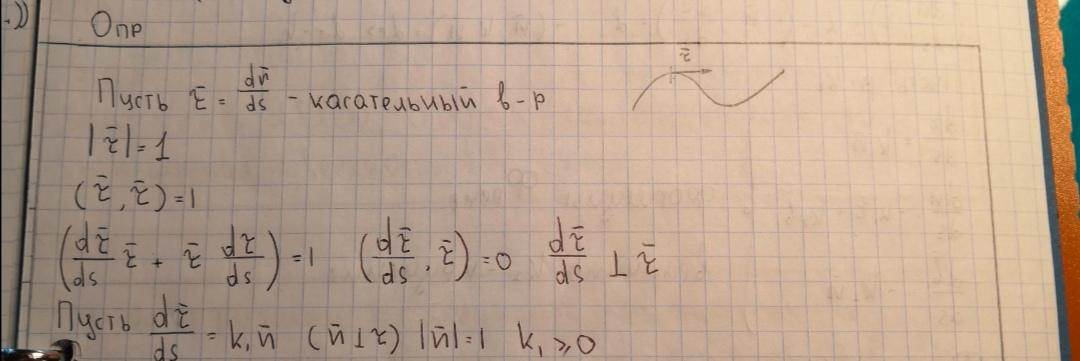 Опр
Пусть τ̄ = dr̄/ds - касательный в-р
τ̄
|τ̄| = 1
(τ̄, τ̄) = 1
(dτ̄/ds τ̄ + τ̄ dτ/ds) = 1 (dτ̄/ds, τ̄) = 0 dτ̄/ds ⊥ τ̄
Пусть dτ̄/ds = k₁n̄ (n̄ ⊥ τ) |n̄| = 1 k₁ ⩾ 0